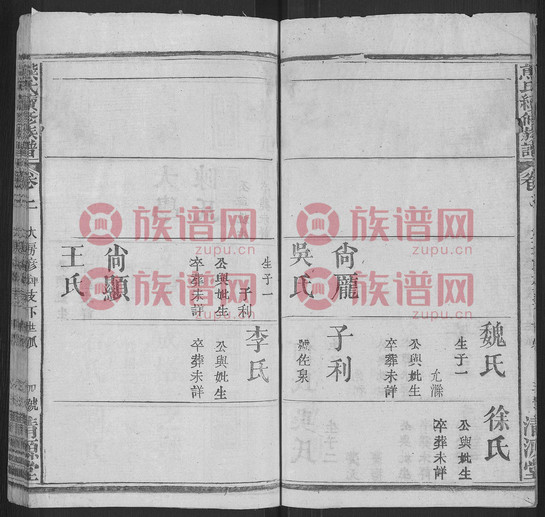 魏氏
生子一
允滌
公與妣生
卒葬未詳
徐氏
公與妣生
卒葬未詳
尚龐
吳氏
生子一
子利
公與妣生
卒葬未詳
子利
號佐泉
李氏
公與妣生
卒葬未詳
尚顯
王氏
公與妣生
卒葬未詳
族谱网
zupu.cn
族谱网
zupu.cn
族谱网
zupu.cn
族谱网
zupu.cn
清源堂
清源堂